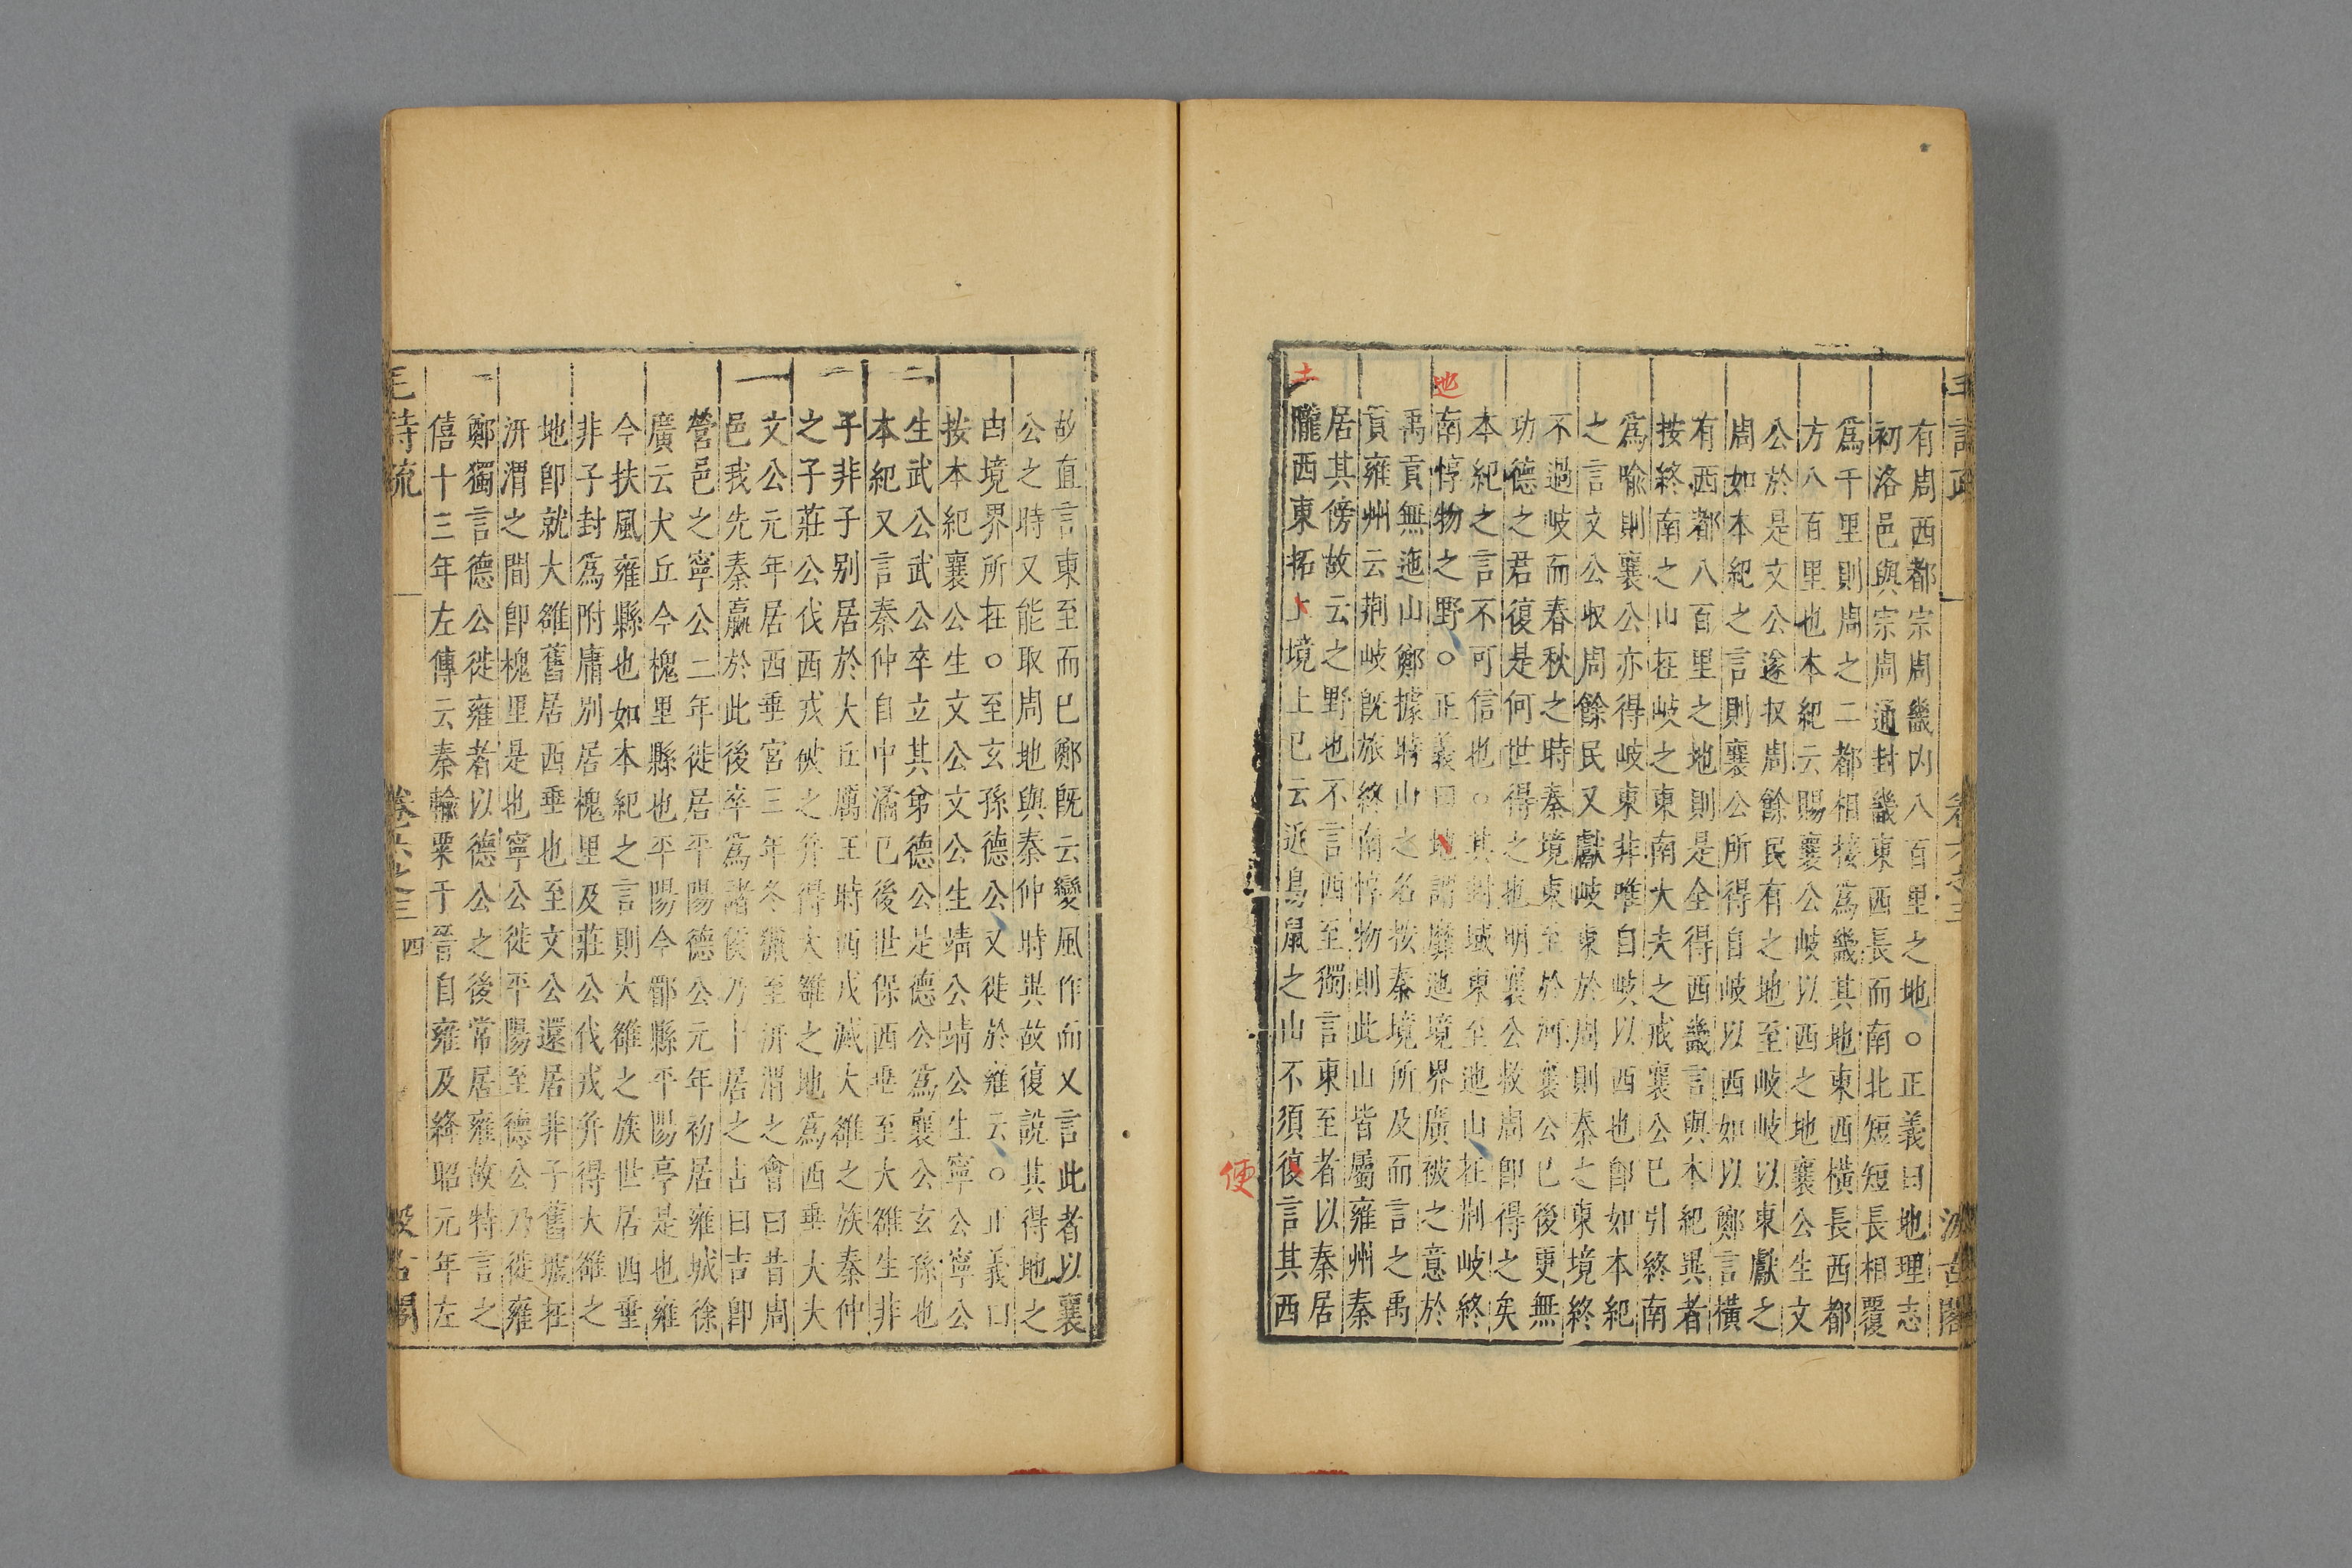 有周西都宗周畿内八百里之地○正義曰地理志
初洛邑與宗周通封畿東西長而南北短短長相覆
爲千里則周之二都相接爲畿其地東西橫長西都
方八百里也本紀云賜襄公岐以西之地襄公生文
公於是文公遂收周餘民有之地至岐岐以東獻之
周如本紀之言則襄公所得自岐以西如以鄭言橫
有西都八百里之地則是全得西畿言與本紀異者
按終南之山在岐之東南大夫之戒襄公已引終南
爲喻則襄公亦得岐東非唯自岐以西也卽如本紀
之言文公收周餘民又獻岐東於周則秦之東境終
不過岐而春秋之時秦境東至於河襄公已後更無
功德之君復是何世得之也明襄公救周卽得之矣
本紀之言不可信也○其封域東至迆山在荆岐終
南惇物之野○正義曰地謂靡迆境界廣被之意於
禹貢無迆山鄭據時山之名按秦境所及而言之禹
貢雍州云荆岐旣旅終南惇物則此山皆屬雍州秦
居其傍故云之野也不言西至獨言東至者以秦居
隴西東拓上境上已云近鳥鼠之山不須復言其西
迆
土
便
故直言東至而已鄭旣云變風作而又言此者以襄
公之時又能取周地與秦仲時異故復說其得地之
由境界所在○至玄孫德公又徙於雍云○正義曰
按本紀襄公生文公文公生靖公靖公生寧公寧公
生武公武公卒立其弟德公是德公爲襄公玄孫也
本紀又言秦仲自中潏已後世保西垂至大雒生非
子非子別居於大丘厲王時西戎滅大雒之族秦仲
之子莊公伐西戎破之并得大雒之地爲西垂大大
文公元年居西垂宮三年冬獵至汧渭之會曰昔周
邑我先秦嬴於此後卒爲諸侯乃卜居之占曰吉卽
營邑之寧公二年徙居平陽德公元年初居雍城徐
廣云犬丘今槐里縣也平陽今郿縣平陽亭是也雍
今扶風雍縣也如本紀之言則大雒之族世居西垂
非子封爲附庸別居槐里及莊公伐戎并得大雒之
地卽就大雒舊居西垂也至文公還居非子舊墟在
汧渭之間卽槐里是也寧公徙平陽至德公乃徙雍
鄭獨言德公徙雍者以德公之後常居雍故特言之
僖十三年左傳云秦輸粟于晉自雍及絳昭元年左
毛詩疏
卷六之三
四